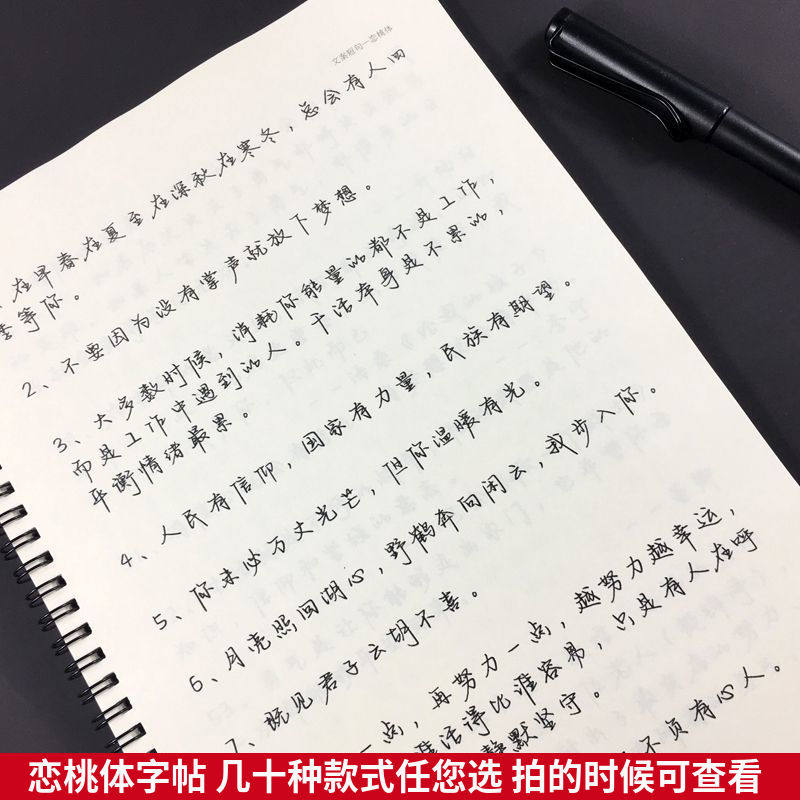 文案短句—恋桃体
在早春在夏至在深秋在寒冬，总会有人四
季等你。
2、不要因为没有掌声就放下梦想。
3、大多数时候，消耗你能量的都不是工作，
而是工作中遇到的人。干活本身是不累的，
平衡情绪最累。
4、人民有信仰，国家有力量，民族有期望。
5、你未必万丈光芒，但你温暖有光。
6、月亮照回湖心，野鹤奔向闲云，我步入你。
7、既见君子云胡不喜。
一点，再努力一点，越努力越幸运，
谁活得比谁容易，只是有人在呼
静默坚守。
不负有心人。
恋桃体字帖 几十种款式任您选 拍的时候可查看